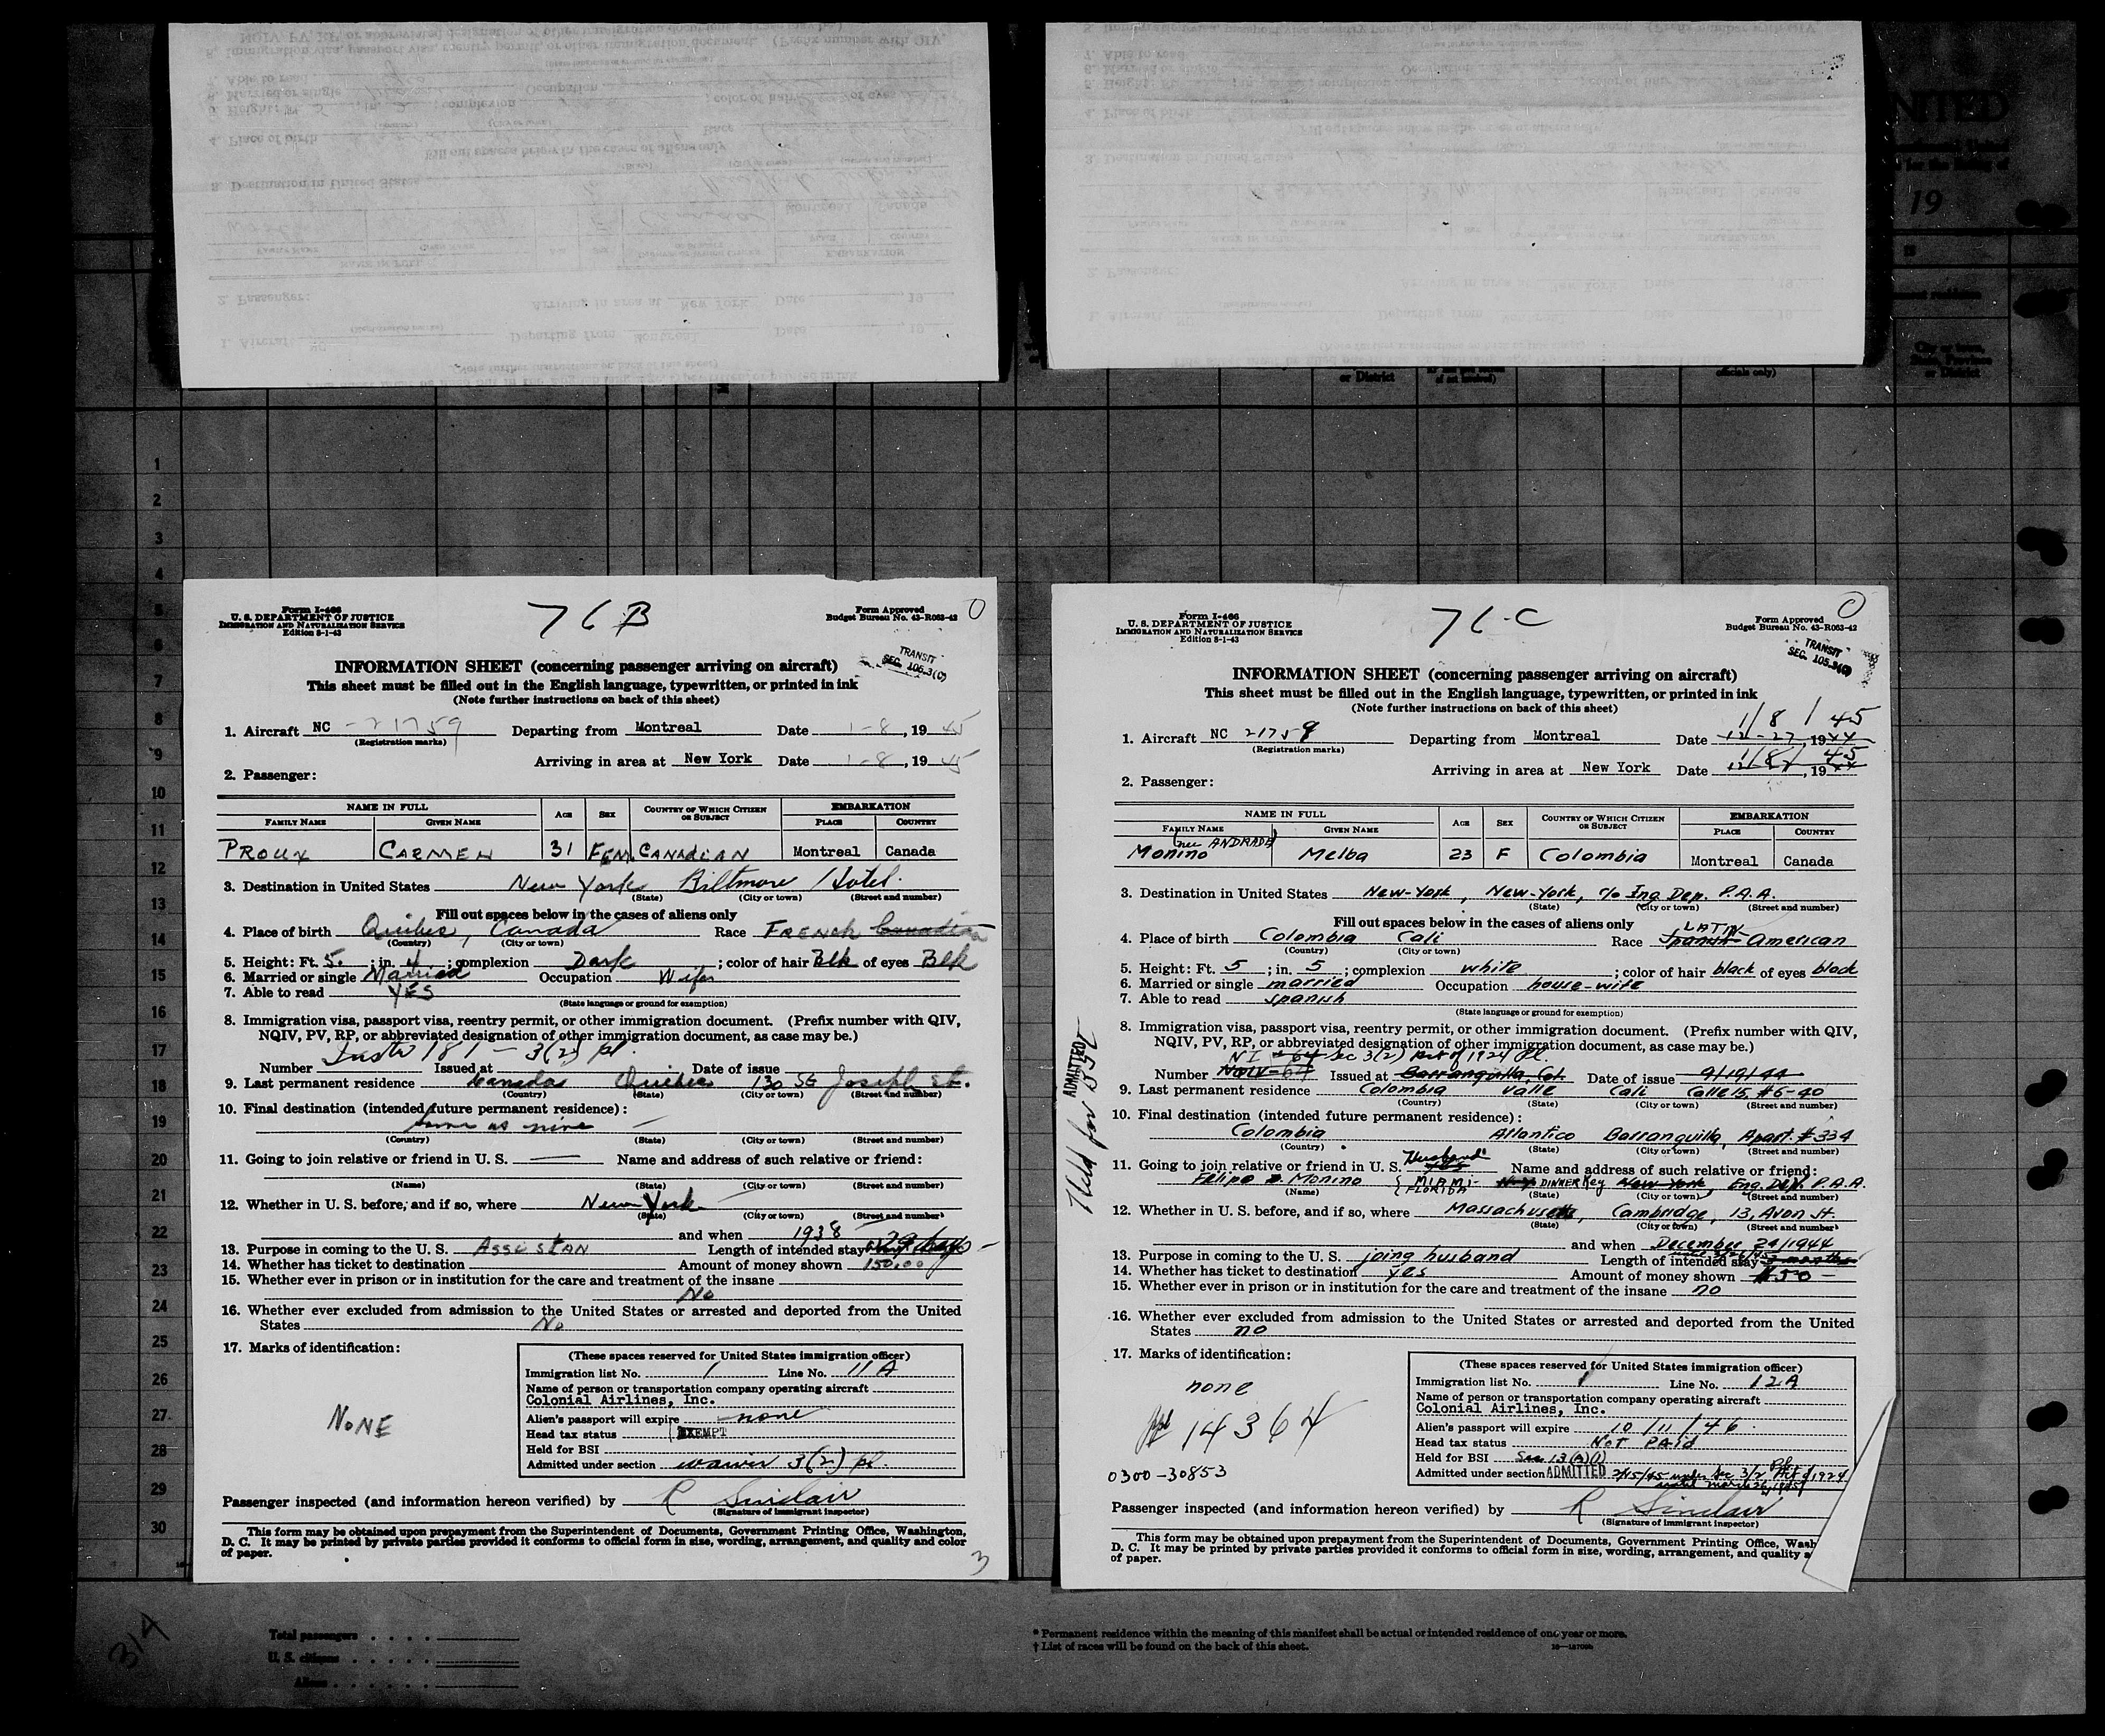 NITED
19
or District
officials only)
City or town,
or District
1
2
3
4
5
6
7
8
9
10
11
12
13
14
15
16
17
18
19
20
21
22
23
24
25
26
27
28
29
30
Form I-466
U. S. DEPARTMENT OF JUSTICE
IMMIGRATION AND NATURALIZATION SERVICE
Edition 8-1-43
76B
Form Approved
Budget Bureau No. 43-R063-42
0
TRANSIT
SEC. 105.3(C)
INFORMATION SHEET (concerning passenger arriving on aircraft)
This sheet must be filled out in the English language, typewritten, or printed in ink
(Note further instructions on back of this sheet)
1. Aircraft NC -21759 Departing from Montreal Date 1-8, 1945
(Registration marks)
Arriving in area at New York Date 1-8, 1945
2. Passenger:
NAME IN FULL AGE SEX COUNTRY OF WHICH CITIZEN OR SUBJECT EMBARKATION
FAMILY NAME GIVEN NAME PLACE COUNTRY
PROUX CARMEN 31 FEM. CANADIAN Montreal Canada
3. Destination in United States New York Biltmore Hotel.
(State) (City or town) (Street and number)
Fill out spaces below in the cases of aliens only
4. Place of birth Quebec, Canada Race FRENCH Canadian
(Country) (City or town)
5. Height: Ft. 5. ; in. 4 ; complexion Dark ; color of hair Blk of eyes Blk
6. Married or single Married Occupation Wife
7. Able to read YES
(State language or ground for exemption)
8. Immigration visa, passport visa, reentry permit, or other immigration document. (Prefix number with QIV,
NQIV, PV, RP, or abbreviated designation of other immigration document, as case may be.)
181 - 3(2) pl.
Number Issued at Date of issue
9. Last permanent residence Canada Quebec 130 St Joseph st.
(Country) (State) (City or town) (Street and number)
10. Final destination (intended future permanent residence):
same as nine
(Country) (State) (City or town) (Street and number)
11. Going to join relative or friend in U. S. Name and address of such relative or friend:
(Name) (State) (City or town) (Street and number)
12. Whether in U. S. before, and if so, where New York
(State) (City or town) (Street and number)
and when 1938
13. Purpose in coming to the U. S. ASSISTAN Length of intended stay 29 days
14. Whether has ticket to destination Amount of money shown 150.00
15. Whether ever in prison or in institution for the care and treatment of the insane
No
16. Whether ever excluded from admission to the United States or arrested and deported from the United
States No
17. Marks of identification:
NONE
(These spaces reserved for United States immigration officer)
Immigration list No. 1 Line No. 11 A
Name of person or transportation company operating aircraft
Colonial Airlines, Inc.
Alien's passport will expire none
Head tax status EXEMPT
Held for BSI
Admitted under section waiver 3(2) pl.
Passenger inspected (and information hereon verified) by R Sinclair
(Signature of immigrant inspector)
This form may be obtained upon prepayment from the Superintendent of Documents, Government Printing Office, Washington,
D. C. It may be printed by private parties provided it conforms to official form in size, wording, arrangement, and quality and color
of paper.
3
Form I-466
U. S. DEPARTMENT OF JUSTICE
IMMIGRATION AND NATURALIZATION SERVICE
Edition 8-1-43
76-C
Form Approved
Budget Bureau No. 43-R063-42
0
TRANSIT
SEC. 105.3(C)
INFORMATION SHEET (concerning passenger arriving on aircraft)
This sheet must be filled out in the English language, typewritten, or printed in ink
(Note further instructions on back of this sheet)
1/8/45
1. Aircraft NC 21759 Departing from Montreal Date 12-27, 1944
(Registration marks)
1/8/ 45
Arriving in area at New York Date , 19
2. Passenger:
NAME IN FULL AGE SEX COUNTRY OF WHICH CITIZEN OR SUBJECT EMBARKATION
FAMILY NAME GIVEN NAME PLACE COUNTRY
(nee ANDRADE)
Monino Melba 23 F Colombia Montreal Canada
3. Destination in United States New-York, New-York, c/o Ing. Dep. P.A.A.
(State) (City or town) (Street and number)
Fill out spaces below in the cases of aliens only
LATIN
4. Place of birth Colombia Cali Race Spanish American
(Country) (City or town)
5. Height: Ft. 5 ; in. 5 ; complexion white ; color of hair black of eyes black
6. Married or single married Occupation house-wife
7. Able to read spanish
(State language or ground for exemption)
8. Immigration visa, passport visa, reentry permit, or other immigration document. (Prefix number with QIV,
NQIV, PV, RP, or abbreviated designation of other immigration document, as case may be.)
NI #64 Sec 3(2) Act of 1924 Pl.
Number NQIV-64 Issued at Barranquilla, Col. Date of issue 9/19/44
9. Last permanent residence Colombia Valle Cali Calle 15, #6-40
(Country) (State) (City or town) (Street and number)
10. Final destination (intended future permanent residence):
Colombia Atlantico Barranquilla, Apart. #334
(Country) (State) (City or town) (Street and number)
Husband
11. Going to join relative or friend in U. S. yes Name and address of such relative or friend:
Felipe Monino { MIAMI - FLORIDA N.Y. DINNER Key New York, Eng. Dep. P.A.A.
(Name) (State) (City or town) (Street and number)
12. Whether in U. S. before, and if so, where Massachusetts, Cambridge, 13, Avon St.
(State) (City or town) (Street and number)
and when December 24/1944
13. Purpose in coming to the U. S. joing husband Length of intended stay 3 months
14. Whether has ticket to destination yes Amount of money shown $50-
15. Whether ever in prison or in institution for the care and treatment of the insane no
16. Whether ever excluded from admission to the United States or arrested and deported from the United
States no
17. Marks of identification:
none
14364
0300-30853
(These spaces reserved for United States immigration officer)
Immigration list No. 1 Line No. 12A
Name of person or transportation company operating aircraft
Colonial Airlines, Inc.
Alien's passport will expire 10/11/46.
Head tax status NOT PAID
Held for BSI Sec 13(a)(1)
Admitted under section ADMITTED 2/15/45 under Sec 3/2 Act of 1924
until March 26, 1945
Passenger inspected (and information hereon verified) by R Sinclair
(Signature of immigrant inspector)
This form may be obtained upon prepayment from the Superintendent of Documents, Government Printing Office, Wash
D. C. It may be printed by private parties provided it conforms to official form in size, wording, arrangement, and quality a
of paper.
ADMITTED
Held for BSI
314
Total passengers . . . .
U. S. citizens . . . . .
Aliens . . . . . .
* Permanent residence within the meaning of this manifest shall be actual or intended residence of one year or more.
† List of races will be found on the back of this sheet.